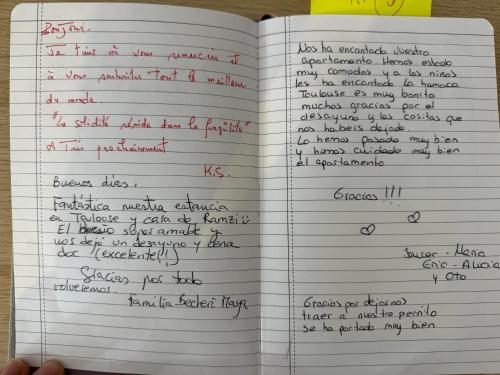 Bonjour.
Je tiens à vous remercier et
à vous souhaiter tout le meilleur
du monde.
"La solidité réside dans la fragilité"
A Très prochainement
K.S.
Buenos días,
Fantástica nuestra estancia
en Toulouse y casa de Ramzi
El super amable y
nos dejó un desayuno y cena
doc (excelente!!)
Gracias por todo
volveremos.
Familia Maya
Nos ha encantado vuestro
apartamento. Hemos estado
muy comodos y a los niños
les ha encantado la hamaca
Toulouse es muy bonito
muchas gracias por el
desayuno y las cositas que
nos habeis dejado.
Lo hemos pasado muy bien
y hemos cuidado muy bien
el apartamento
Gracias!!!
Javier - Maria
Eric - Alucia
y Oto
Gracias por dejarnos
traer a nuestro perrito
se ha portado muy bien